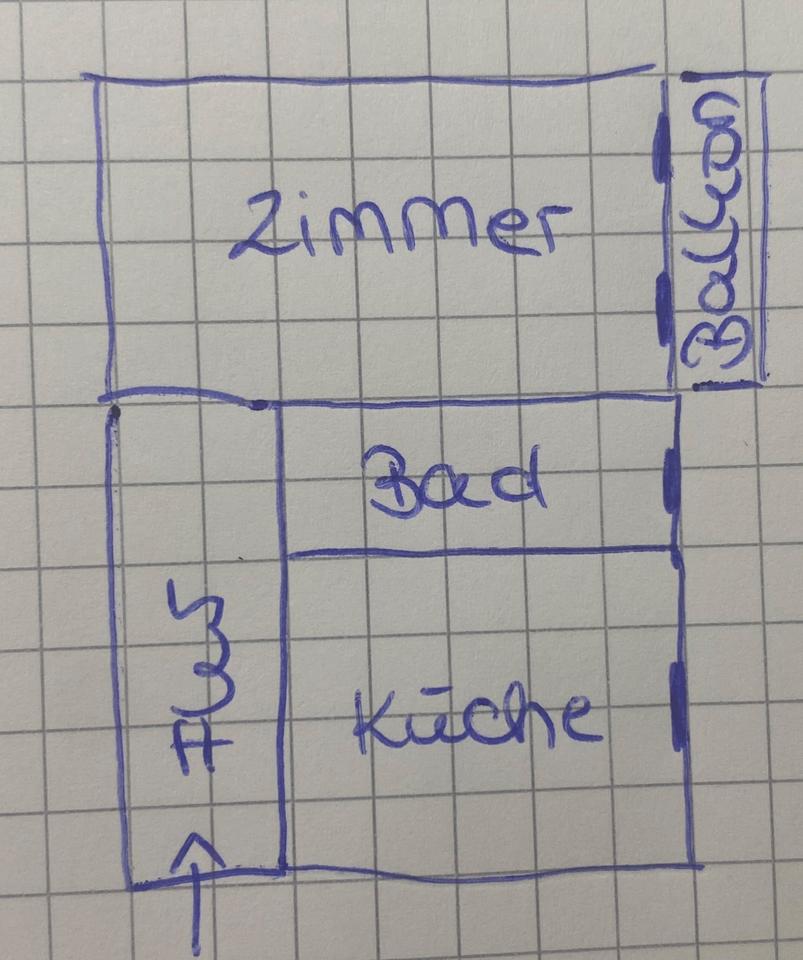 Zimmer
Balkon
Bad
Flur
Küche